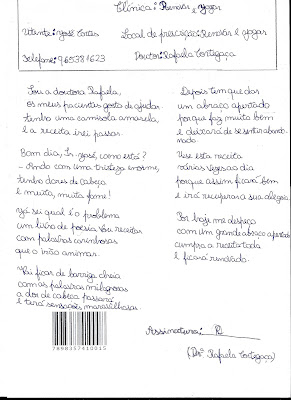 Clínica: Pensar e jogar
Utente: José Cortes
Local de prescrição: Pensar e jogar
Telefone: 965381623
Doutora: Rafaela Cortegaça
Sou a doutora Rafaela,
Os meus pacientes gosto de ajudar
tenho uma camisola amarela
e a receita irei passar.
Bom dia, Sr. José, como está?
- Ando com uma tristeza enorme,
tenho dores de cabeça
e muita, muita fome!
Já sei qual é o problema
um livro de poesia vou receitar
com palavras carinhosas
que o irão animar.
Vai ficar de barriga cheia
com as palavras milagrosas
a dor de cabeça passará
e terá sensações maravilhosas.
7898357410015
Depois tem que dar
um abraço apertado
porque faz muito bem
e deixará de se sentir abando-
nado.
Use esta receita
várias vezes ao dia
porque assim ficará bem
e irá recuperar a sua alegria.
Por hoje me despeço
com um grande abraço apertado
cumpra a receita toda
e ficará
Assinatura:
(Drª Rafaela Cortegaça)